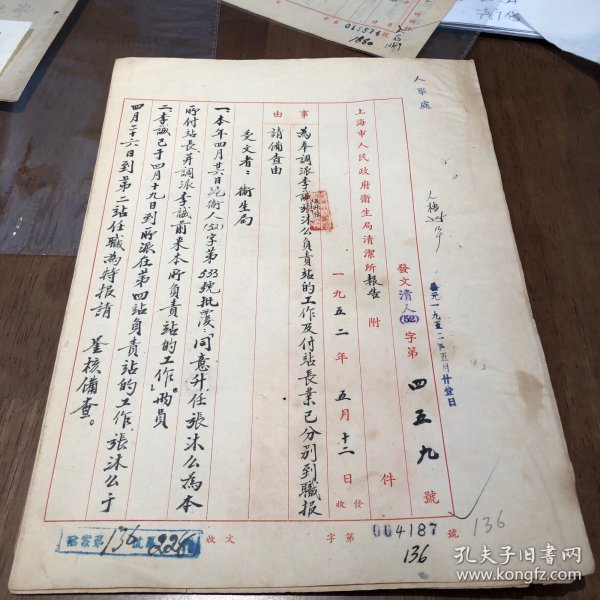 人事處
發文清人(52)字第四五九號
上海市人民政府衛生局清潔所報告
附件
一九五二年五月十二日發收
事由
為奉調派李誠張沐公負責站的工作及付站長業已分別到職報
請備查由
受文者：衛生局
一、本年四月廿六日滬衛人(52)字第533號批覆：同意升任張沐公為本
所付站長，并調派李誠前來本所負責站的工作。兩員
二、李誠已于四月十九日到所派在第四站負責站的工作，張沐公于
四月二十六日到第二站任職為特報請 鉴核備查。
收文 字第004187號
136
136
檔案第136號第226
011874號
1880
孔夫子旧书网
www.kongfz.com